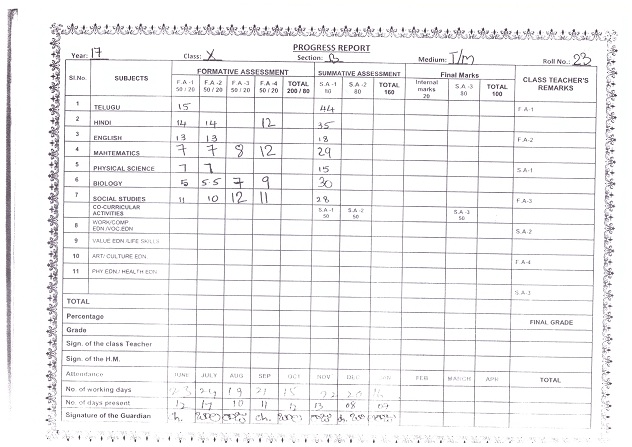 PROGRESS REPORT
Year: 17 Class: X Section: B Medium: T/M Roll No.: 23
Sl.No. SUBJECTS FORMATIVE ASSESSMENT SUMMATIVE ASSESSMENT Final Marks CLASS TEACHER'S REMARKS
F.A-1 50/20 F.A-2 50/20 F.A-3 50/20 F.A-4 50/20 TOTAL 200/80 S.A-1 80 S.A-2 80 TOTAL 160 Internal marks 20 S.A-3 80 TOTAL 100
1 TELUGU 15 44 F.A-1
2 HINDI 14 14 12 35
3 ENGLISH 13 13 18 F.A-2
4 MAHTEMATICS 7 7 8 12 29
5 PHYSICAL SCIENCE 7 7 15 S.A-1
6 BIOLOGY 5 5.5 7 9 30
7 SOCIAL STUDIES 11 10 12 11 28 F.A-3
CO-CURRICULAR ACTIVITIES S.A-1 50 S.A-2 50 S.A-3 50
8 WORK/COMP. EDN./VOC.EDN S.A-2
9 VALUE EDN./LIFE SKILLS
10 ART/ CULTURE EDN. F.A-4
11 PHY.EDN / HEALTH EDN.
S.A-3
TOTAL
Percentage FINAL GRADE
Grade
Sign. of the class Teacher
Sign. of the H.M.
Attendance JUNE JULY AUG SEP OCT NOV DEC JAN FEB MARCH APR TOTAL
No. of working days 24 19 21 15 22
No. of days present 12 17 10 11 12 13 08 09
Signature of the Guardian